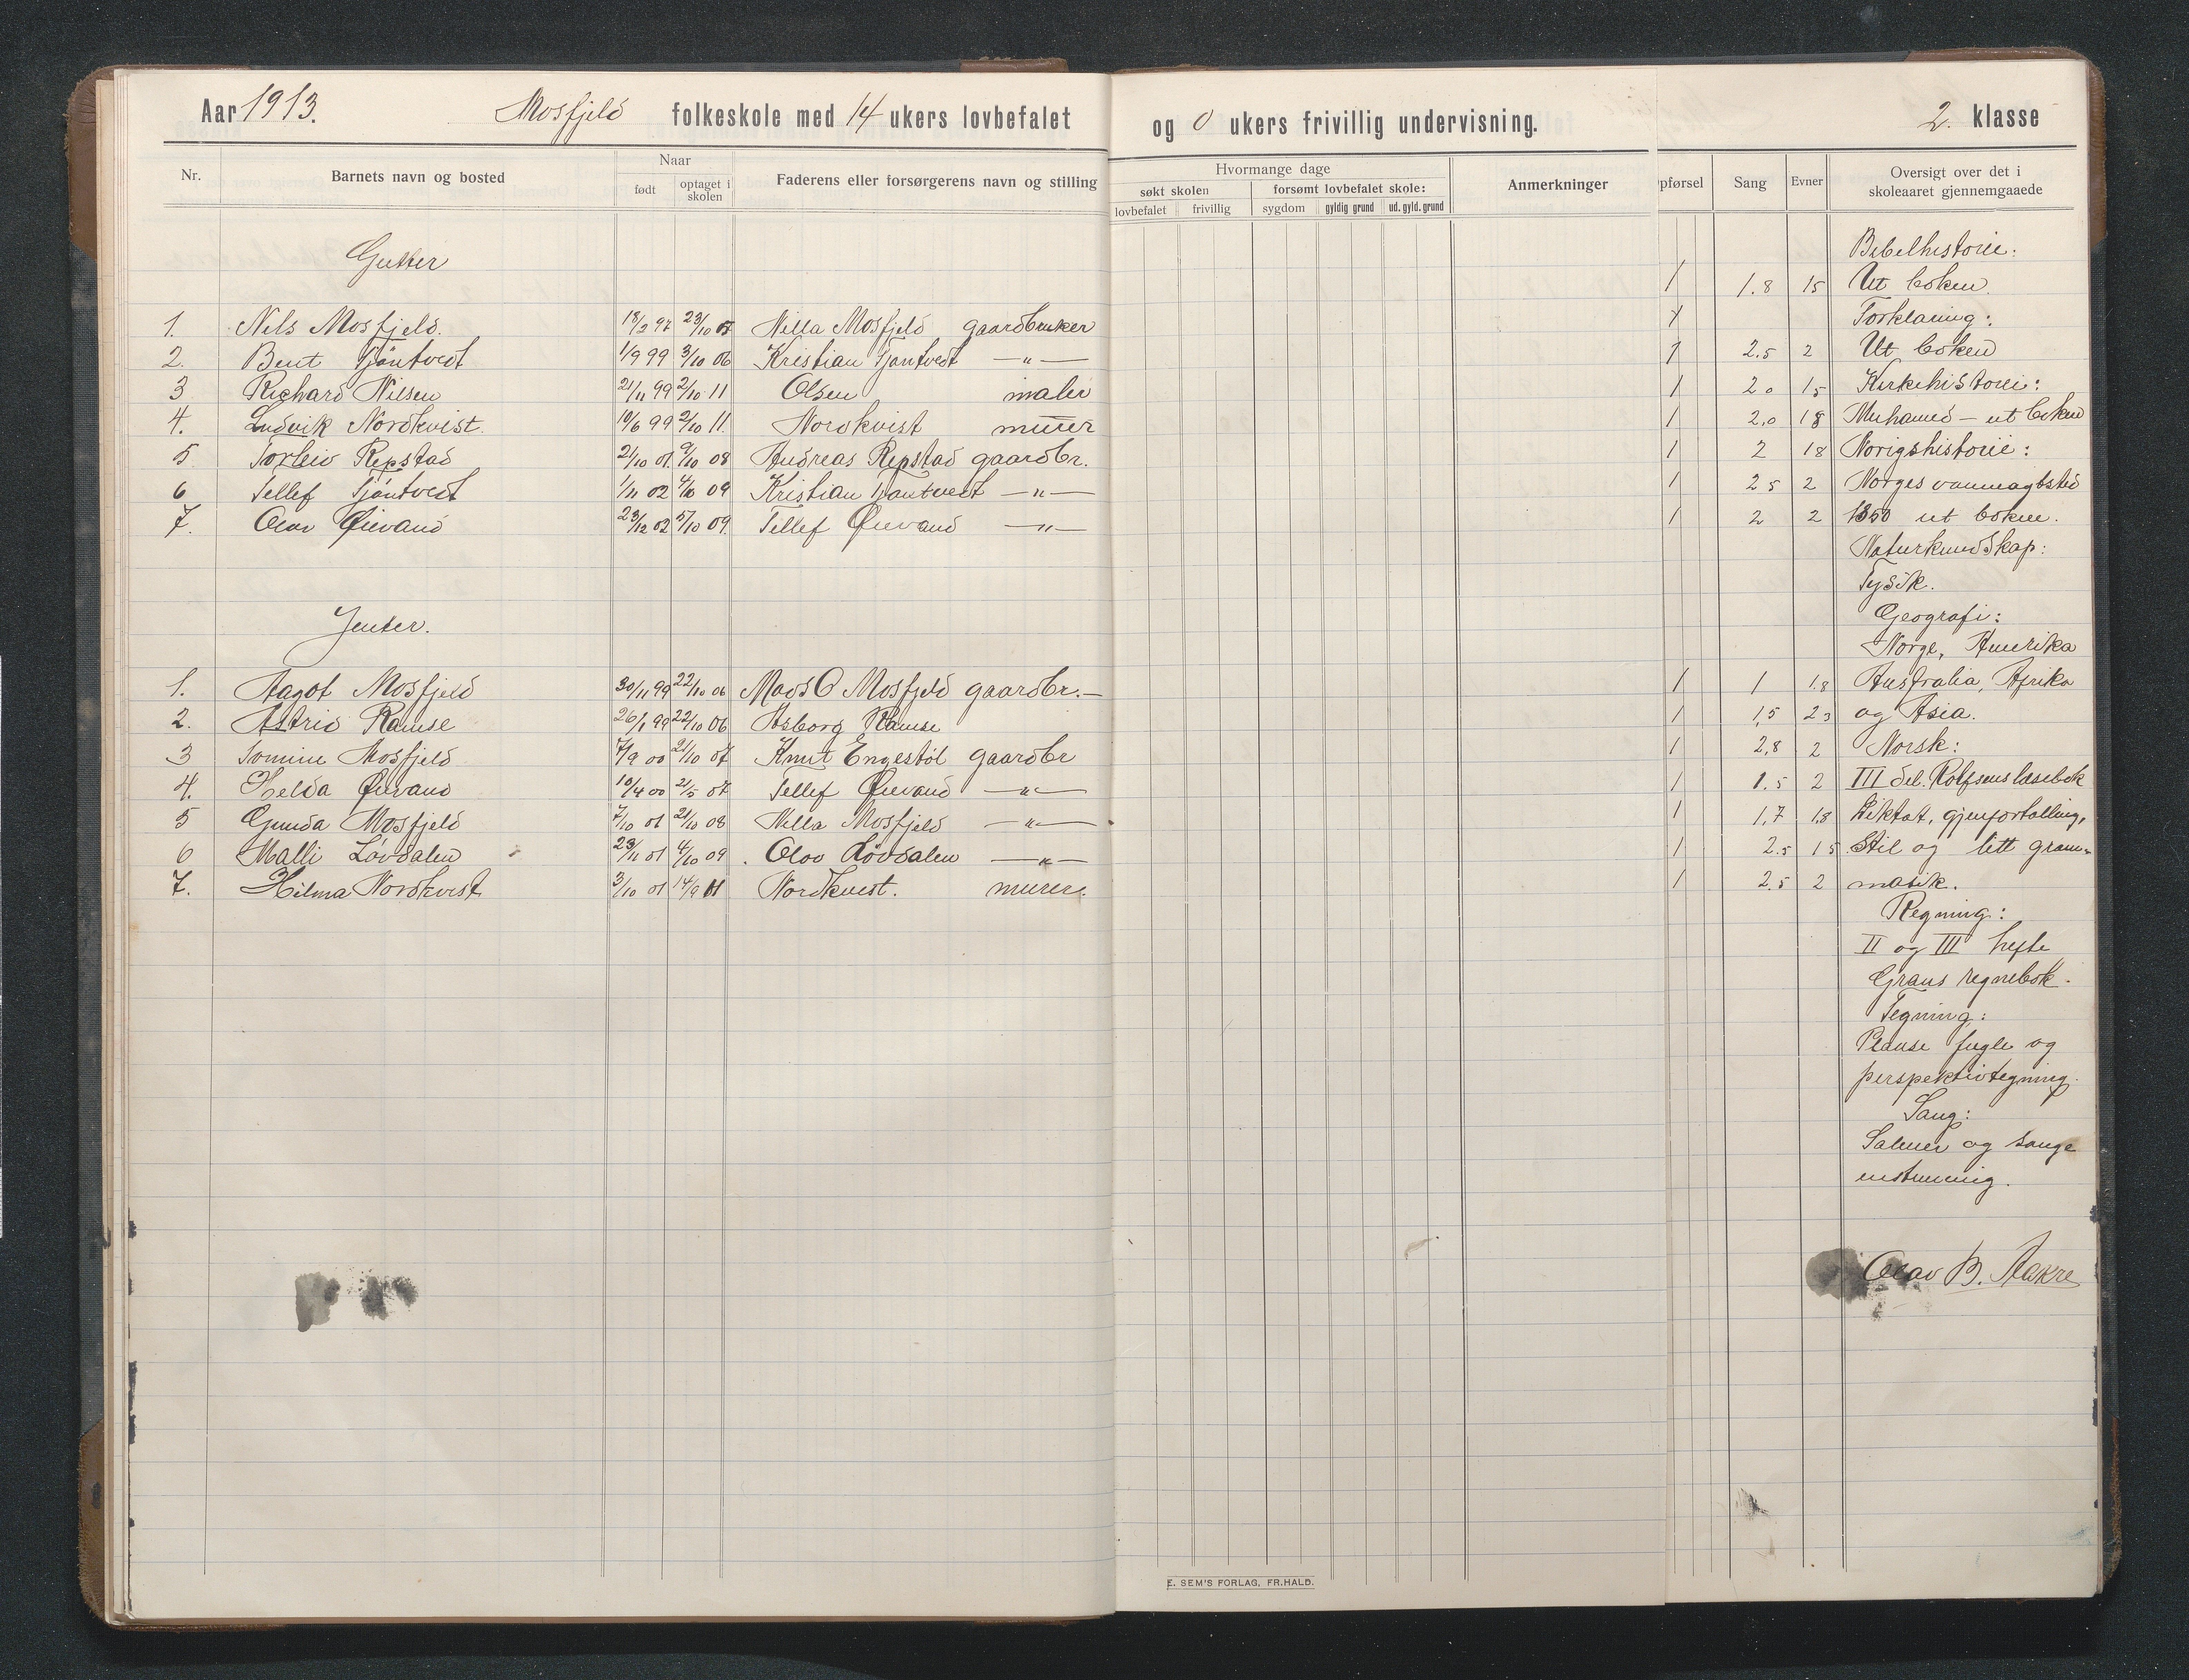 Aar 1913. Mosfjeld folkeskole med 14 ukers lovbefalet og 0 ukers frivillig undervisning. 2. klasse
Nr. Barnets navn og bosted Naar Faderens eller forsørgerens navn og stilling
født optaget i skolen
Hvormange dage Anmerkninger
søkt skolen forsømt lovbefalet skole:
lovbefalet frivillig sygdom gyldig grund ud. gyld. grund
pførsel Sang Evner Oversigt over det i
skoleaaret gjennemgaaede
Gutter
1. Nils Mosfjeld. 18/2 97 23/10 07 Nilla Mosfjeld gaardbruker
2. Bent Tjöntvedt 1/9 99 3/10 06 Kristian Tjöntvedt —"—
3 Richard Nilsen 21/11 99 2/10 11 Olsen maler
4. Ludvik Nordkvist. 10/6 99 2/10 11. Nordkvist murer
5 Torleiv Repstad 21/10 01. 9/10 08 Andreas Repstad gaardbr.
6 Tellef Tjöntvedt 1/11 02 4/10 09 Kristian Tjöntvedt —"—
7. Olav Øievand 23/12 02 5/10 09. Tellef Øievand —"—
Jenter.
1. Aagot Mosfjeld 30/11 99 22/10 06 Mads O Mosfjeld gaardbr.—
2. Astrid Ramse 26/1 99 22/10 06 Asborg Ramse
3 Tomine Mosfjeld 7/9 00 21/10 07 Knut Engestöl gaardbr
4. Helda Øievand 10/4 00 21/5 07 Tellef Øievand —"—
5 Gunda Mosfjeld 7/10 01 21/10 08 Nilla Mosfjeld —"—
6 Malli Lövdalen 23/11 01 4/10 09 Olov Lövdalen —"—
7. Hilma Nordkvist 3/10 01 14/9 11 Nordkvest. murer.
Bibelhistorie:
1 1.8 15 Ut boken.
Forklaring:
1 2.5 2 Ut boken
1 20 15 Kirkehistorie:
1 2,0 18 Muhamed – ut boken
1 2 18 Norigshistorie:
1 25 2 Norges vanmagtstid
1 2 2 1350 ut boken.
Naturkundskap:
Fysik.
Geografi:
Norge, Amerika
1 1 1.8 Australia, Afrika
1 1,5 23 og Asia.
1 2,8 2 Norsk:
1 1.5 2 III del. Rolfsens læsebok
1 1,7 1,8 Diktat, gjenfortelling,
1 2.5 15 Stil og litt gram-
1 2.5 2 matik.
Regning:
II og III hefte
Grans regnebok.
Tegning:
Planse fugle og
perspektivtegning.
Sang:
Salmer og sange
enstemmig.
Olav B. Aakre
E. SEM'S FORLAG, FR.HALD.